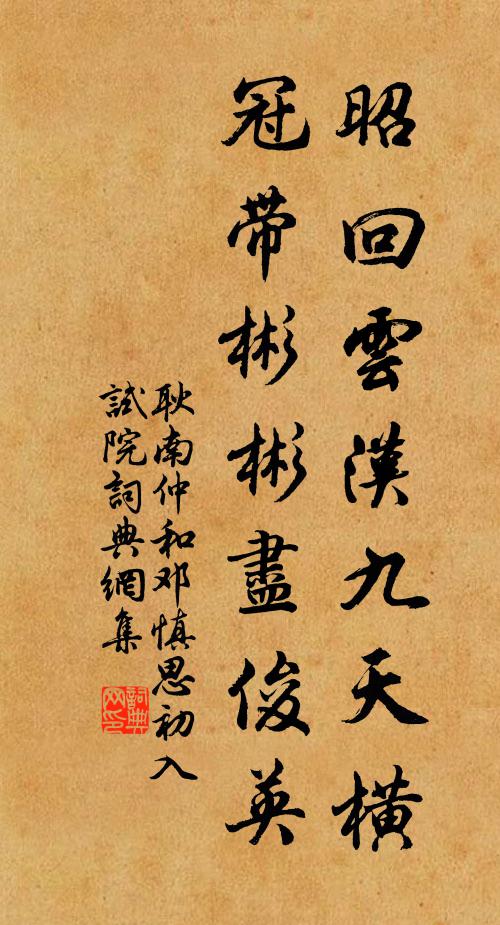 昭回雲漢九天横
冠带彬彬盡俊英
耿南仲和邓慎思初入
試院詞典網集
詞典网印